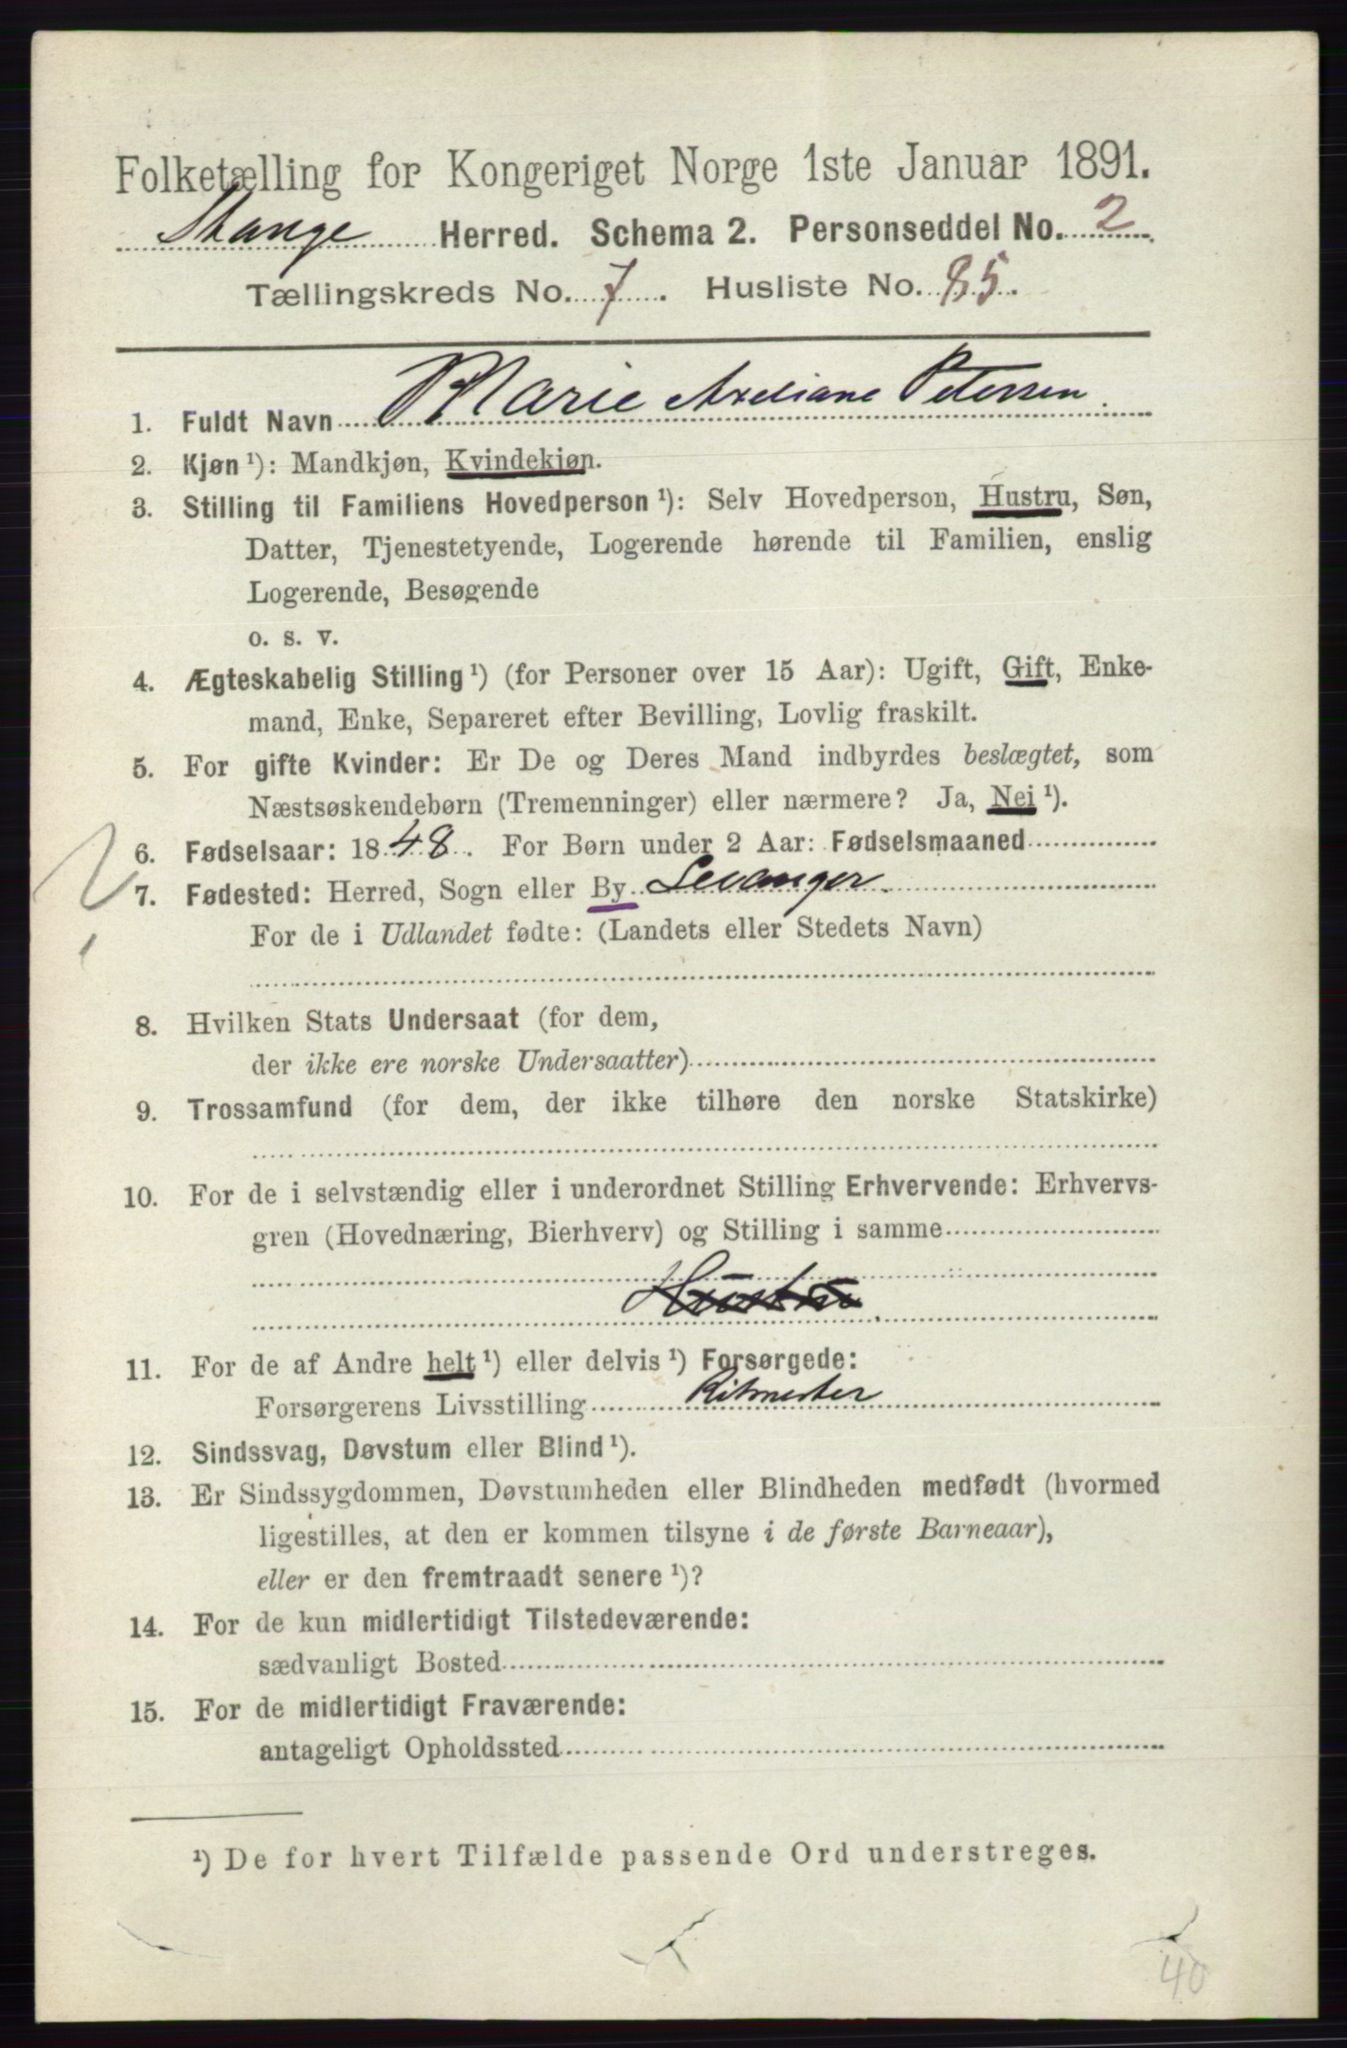 Folketælling for Kongeriget Norge 1ste Januar 1891.
Stange Herred. Schema 2. Personseddel No. 2
Tællingskreds No. 7. Husliste No. 85.
1. Fuldt Navn Marie Axeliane Petersen.
2. Kjøn ¹): Mandkjøn, Kvindekjøn.
3. Stilling til Familiens Hovedperson ¹): Selv Hovedperson, Hustru, Søn,
Datter, Tjenestetyende, Logerende hørende til Familien, enslig
Logerende, Besøgende
o. s. v.
4. Ægteskabelig Stilling ¹) (for Personer over 15 Aar): Ugift, Gift, Enke-
mand, Enke, Separeret efter Bevilling, Lovlig fraskilt.
5. For gifte Kvinder: Er De og Deres Mand indbyrdes beslægtet, som
Næstsøskendebørn (Tremenninger) eller nærmere? Ja, Nei ¹).
6. Fødselsaar: 1848. For Børn under 2 Aar: Fødselsmaaned
7. Fødested: Herred, Sogn eller By Levanger.
For de i Udlandet fødte: (Landets eller Stedets Navn)
8. Hvilken Stats Undersaat (for dem,
der ikke ere norske Undersaatter)
9. Trossamfund (for dem, der ikke tilhøre den norske Statskirke)
10. For de i selvstændig eller i underordnet Stilling Erhvervende: Erhvervs-
gren (Hovednæring, Bierhverv) og Stilling i samme
Hustru.
11. For de af Andre helt ¹) eller delvis ¹) Forsørgede:
Forsørgerens Livsstilling Ritmester
12. Sindssvag, Døvstum eller Blind ¹).
13. Er Sindssygdommen, Døvstumheden eller Blindheden medfødt (hvormed
ligestilles, at den er kommen tilsyne i de første Barneaar),
eller er den fremtraadt senere ¹)?
14. For de kun midlertidigt Tilstedeværende:
sædvanligt Bosted
15. For de midlertidigt Fraværende:
antageligt Opholdssted
¹) De for hvert Tilfælde passende Ord understreges.
40